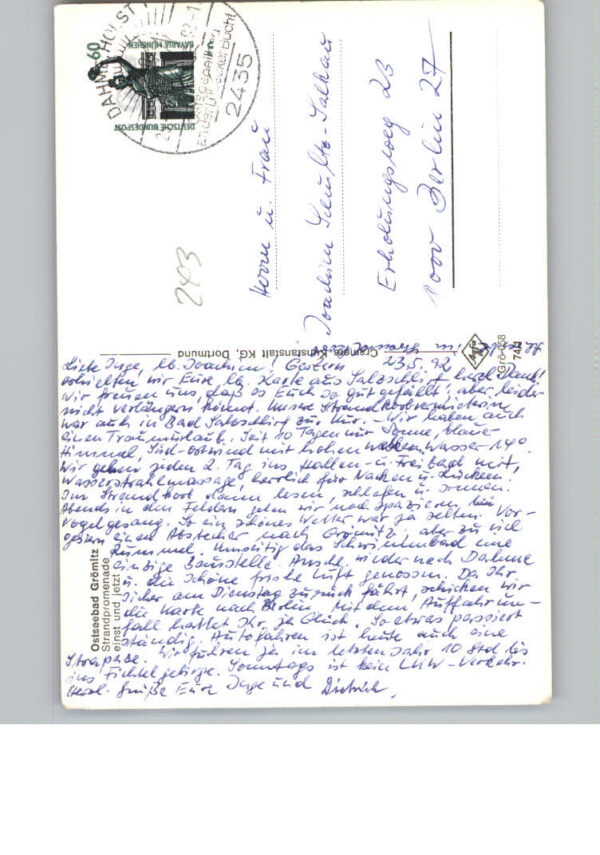 60
BAYARIA MÜNCHEN
DEUTSCHE BUNDESPOST
DAHME, HOLST
2435
243
Herrn u. Frau
Joachim Schultz-Salkau
Erholungsweg 23
1000 Berlin 27
Cramers Kunstanstalt KG, Dortmund
Grö 058
Ostseebad Grömitz
Strandpromenade
einst und jetzt
23.5.92
Liebe Inge, lb. Joachim! Gestern
erhielten wir Eure lb. Karte aus Salzschlirf, herzl. Dank!
Wir freuen uns, daß es Euch so gut gefällt, aber leider
nicht verlängern könnt. Unsere Strandkorbvermieterin
war auch in Bad Salzschlirf zur Kur. - Wir haben auch
einen Traumurlaub. Seit 10 Tagen nur Sonne, blauer
Himmel, Süd-Ostwind mit hohen Wellen, Wasser 14°.
Wir gehen jeden 2. Tag ins Hallen- u. Freibad mit
Wasserstrahlmassage, herrlich für Nacken u. Rücken.
Im Strandkorb dann lesen, schlafen u. sonnen.
Abends in den Feldern gehen wir noch spazieren bei
Vogelgesang. So ein schönes Wetter war ja selten. Vor-
gestern einen Abstecher nach Grömitz, aber zu viel
Rummel. Umseitig das Schwimmbad eine
einzige Baustelle. Anschl. wieder nach Dahme
u. die schöne frische Luft genossen. Da Ihr
sicher am Dienstag zurück fährt, schicken wir
die Karte nach Berlin. Mit dem Auffahrun-
fall hattet Ihr ja Glück. So etwas passiert
ständig. Autofahren ist heute auch eine
Strapaze. Wir fuhren ja im letzten Jahr 10 Std bis
ins Fichtelgebirge. Sonntags ist kein LKW-Verkehr.
Herzl. Grüße Eure Inge und Dietrich